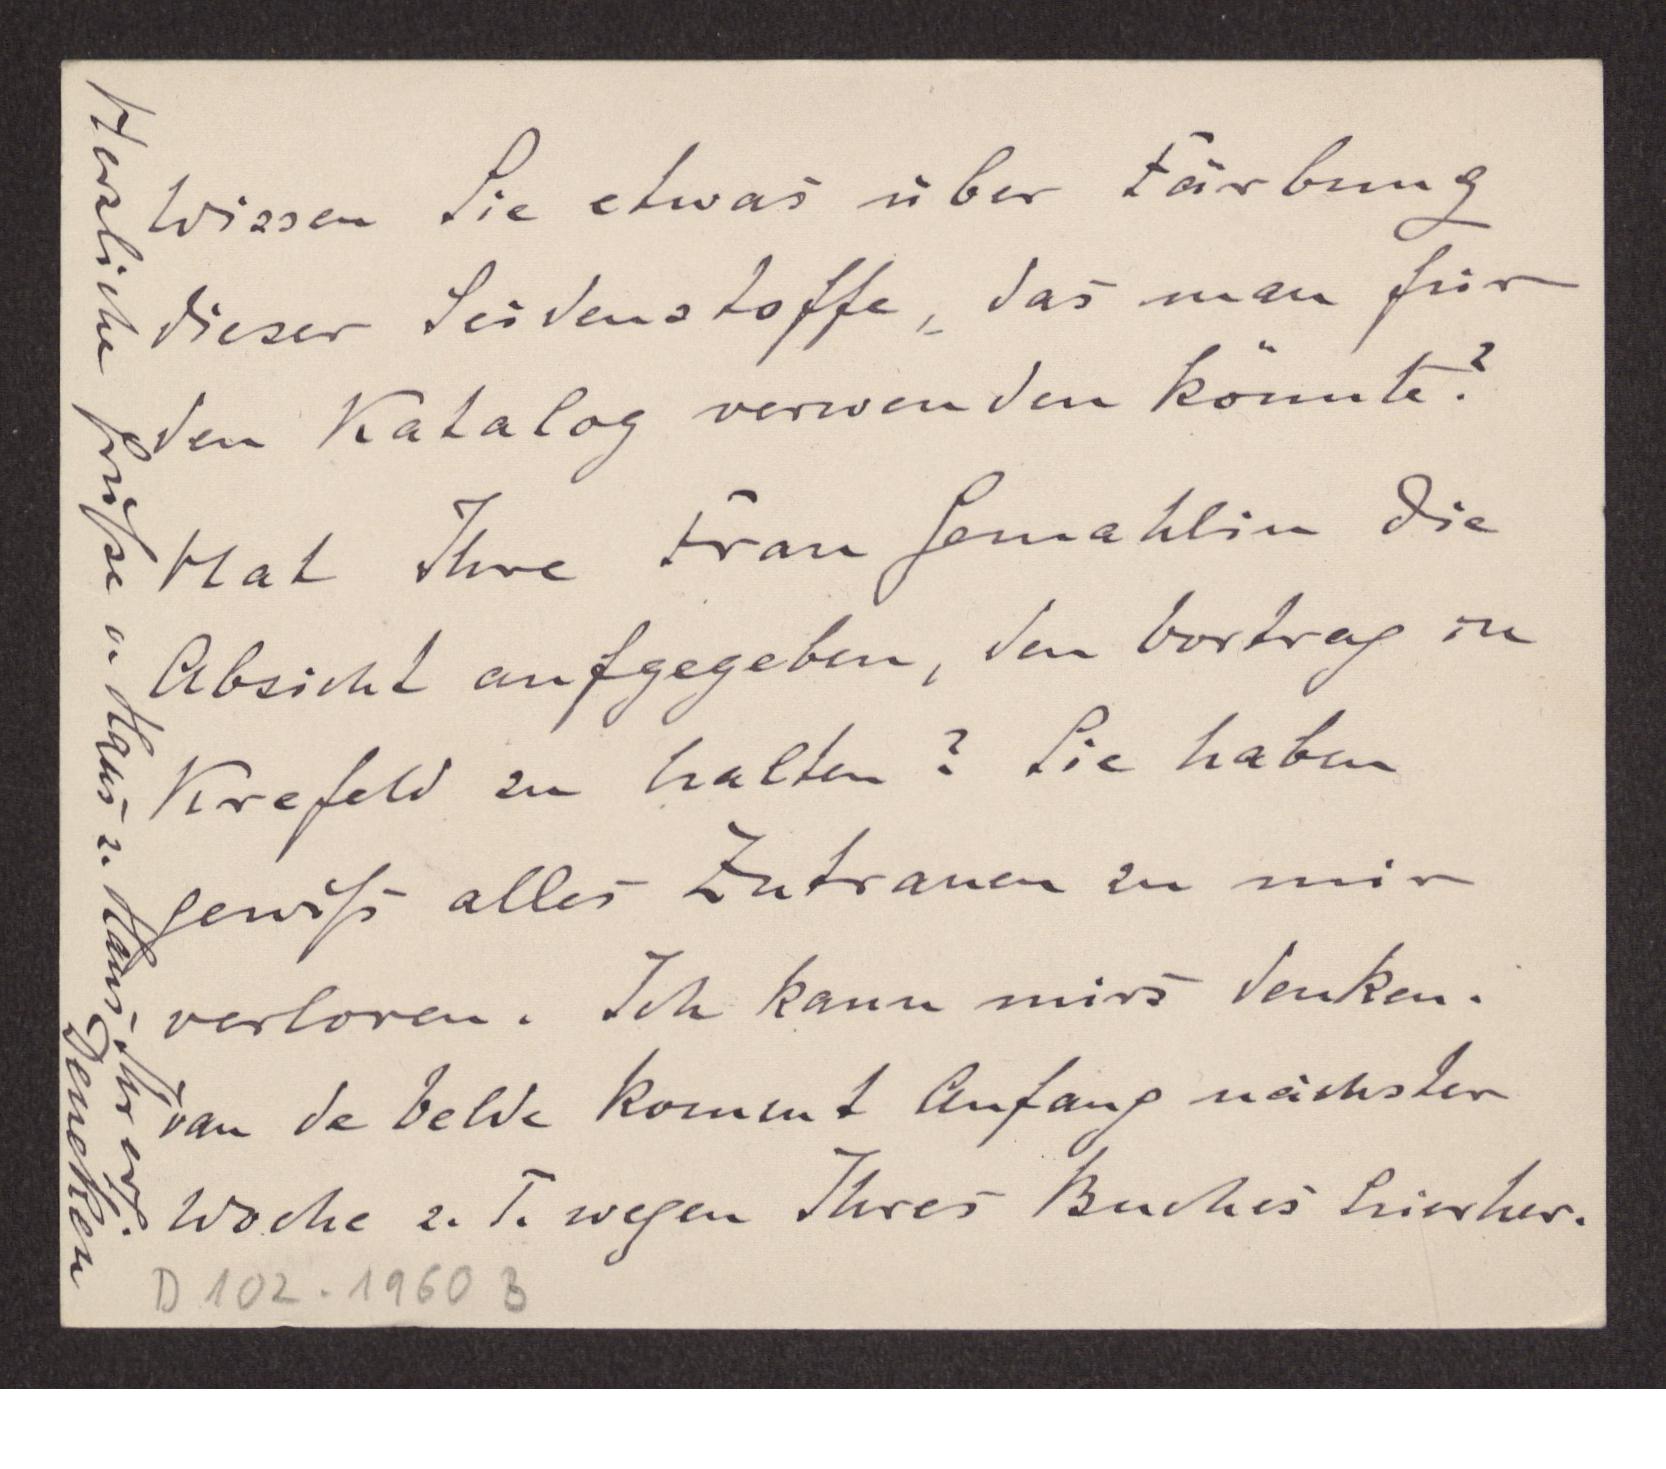 Wissen Sie etwas über Färbung
dieser Seidenstoffe, das man für
den Katalog verwenden könnte?
Hat Ihre Frau Gemahlin die
Absicht aufgegeben, den Vortrag in
Krefeld zu halten? Sie haben
gewiß alles Zutrauen zu mir
verloren. Ich kann mirs denken.
Van de Velde kommt Anfang nächster
Woche z. T. wegen Ihres Buches hierher.
Herzliche Grüße v. Haus z. Haus Ihr erg.
Deneken
D 102.1960 B